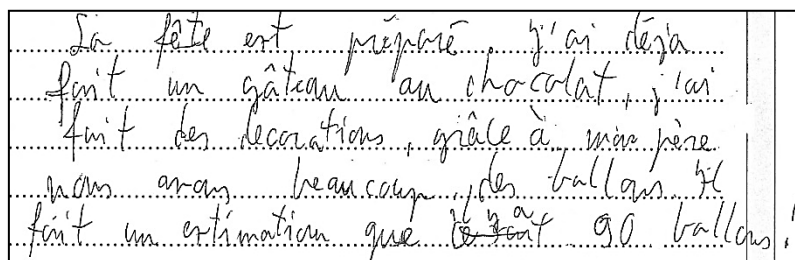 La fête est préparé. J'ai déja
fait un gâteau au chocolat, j'ai
fait des decorations, grâce à mon père
nous avons beaucoup des ballons. Il
fait un estimation que il y a 90 ballons!